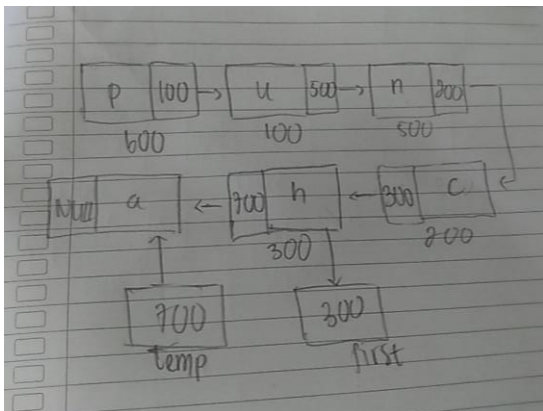 p 100 u 500 n 200
600 100 500
Null a 700 h 300 c
300 200
700 300
temp first